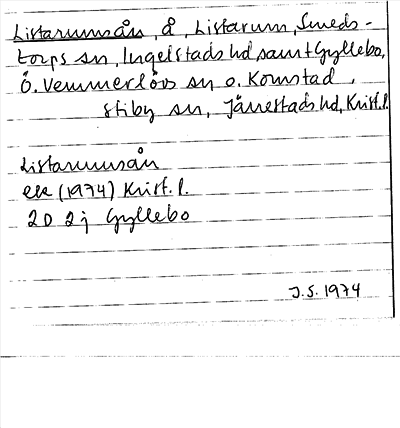 Listarumsån å, Listarum, Smeds-
torps sn, Ingelstads hd samt Gyllebo,
Ö. Vemmerlövs sn o. Komstad,
Stiby sn, Järrestads hd, Krist.l.
Listarumsån
ek (1974) Krist.l.
2D 2j Gyllebo
J.S. 1974